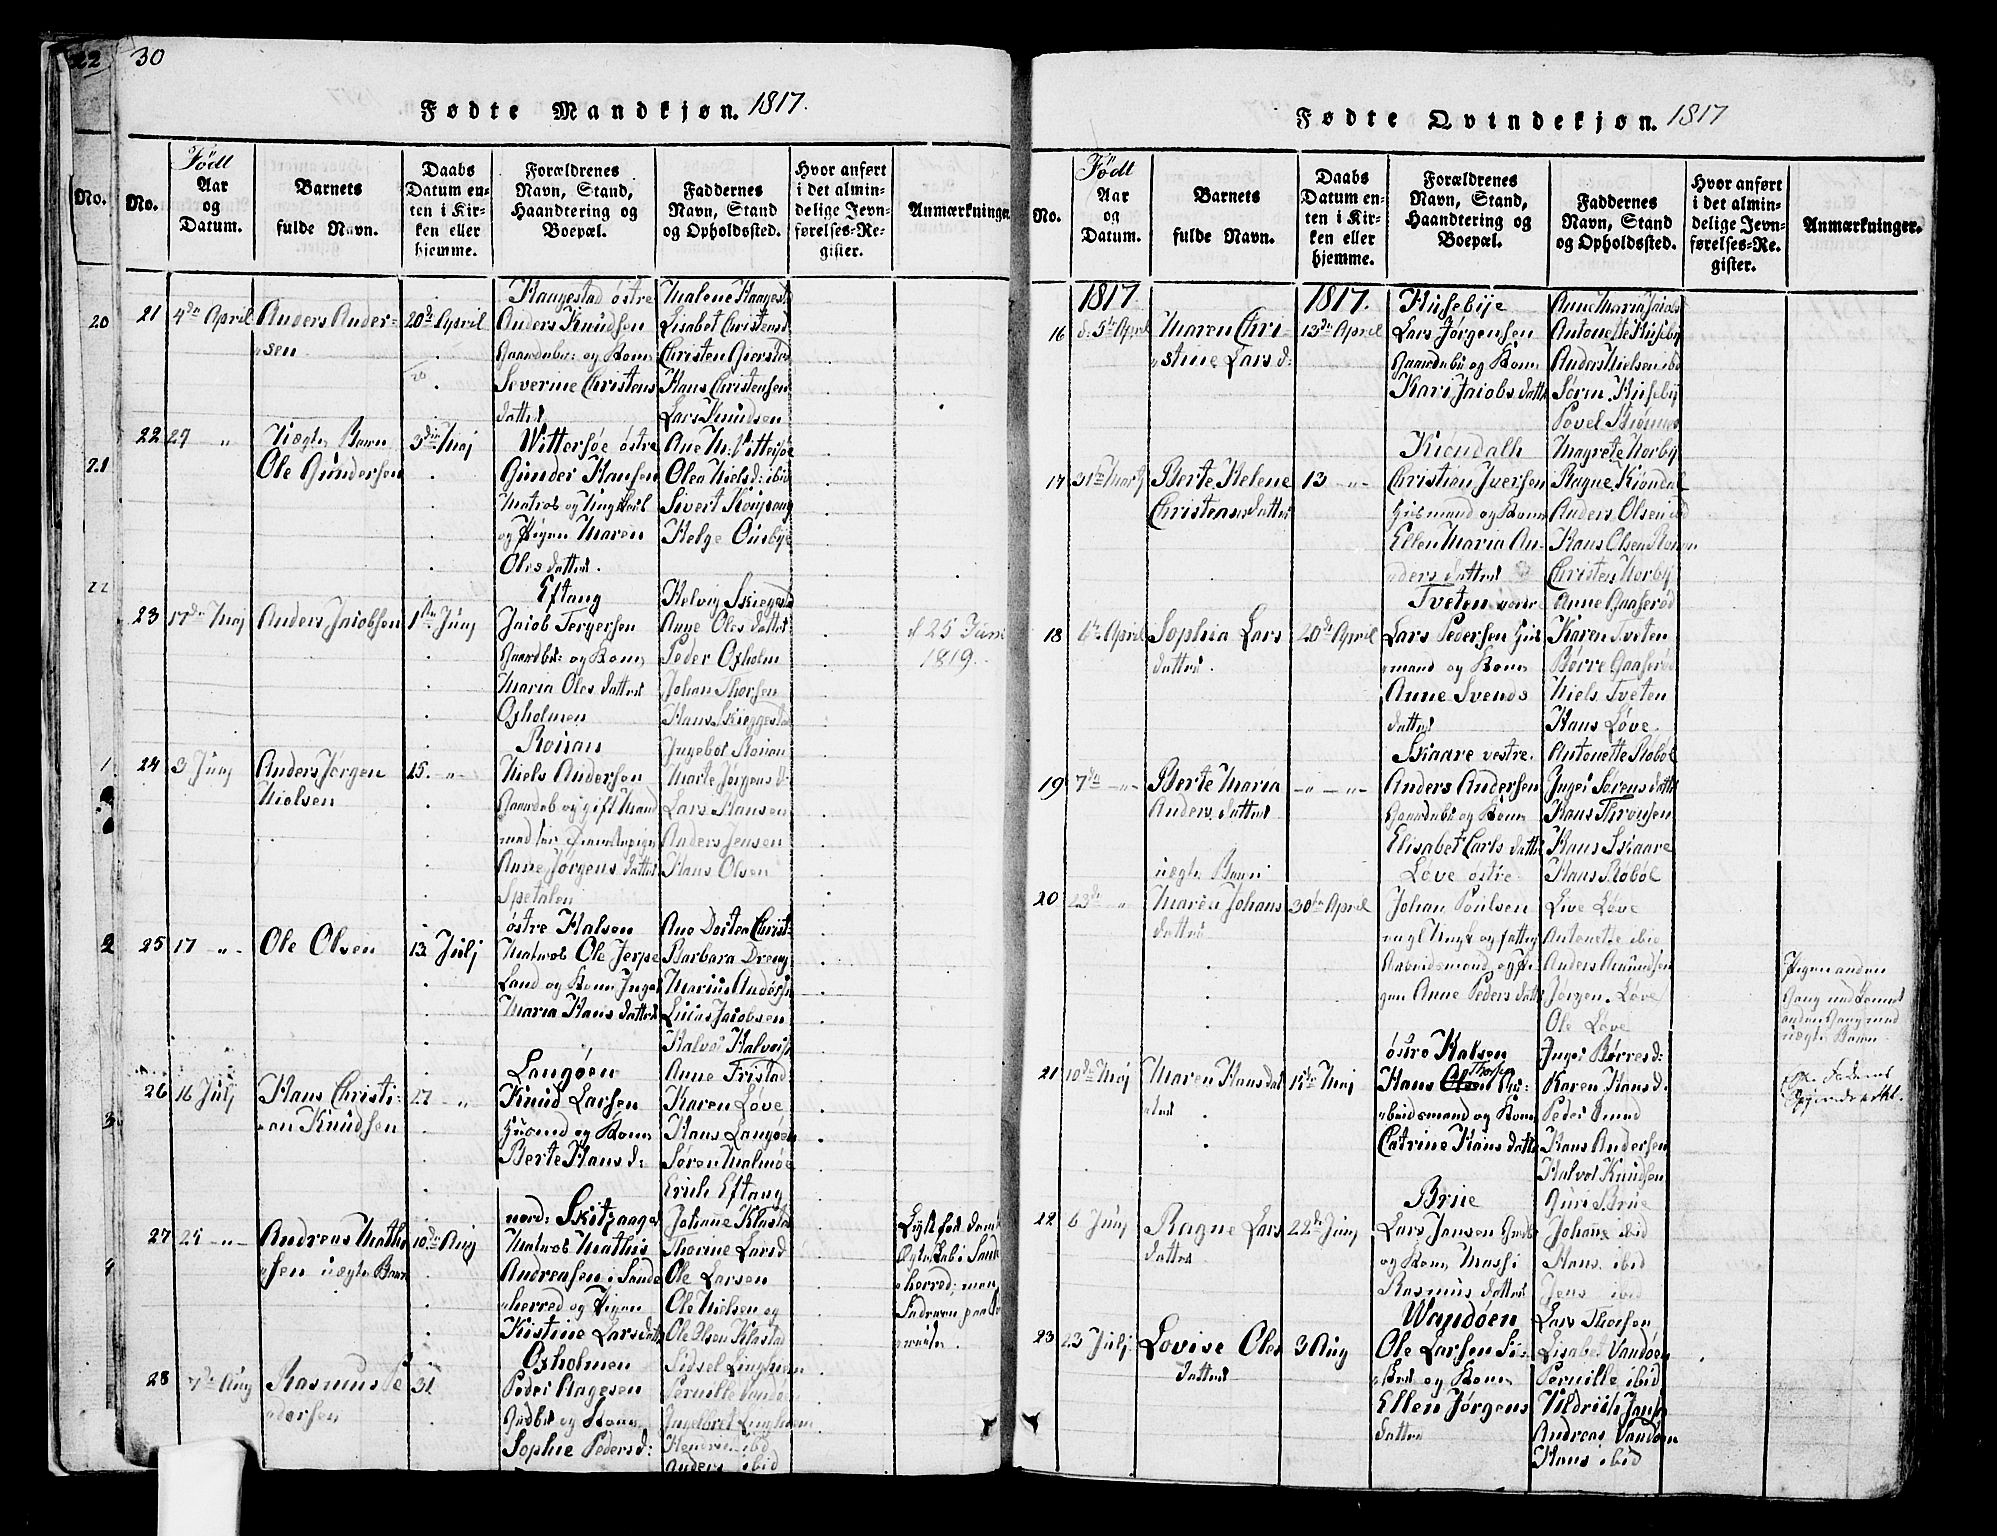 22
30
Fødte Mandkjøn. 1817.
No.
No.
Född
Aar
og
Datum.
Barnets
fulde Navn.
Daabs
Datum en-
ten i Kir-
ken eller
hjemme.
Forældrenes
Navn, Stand,
Haandtering og
Boepæl.
Faddernes
Navn, Stand
og Opholdssted.
Hvor anført
i det almin-
delige Jevn-
førelses-Re-
gister.
Anmærkninger
20
21
22
1
2
3
4
21
4de April
Anders Ander-
sen
20de April
Haugestad østre
Anders Knudsen
Gaardbr: og Kone
Severine Christens
datter
Malene Haugestad
Lisabet Christensd
Christen Gierstad
Hans Christensen
Lars Knudsen
22
29 "
Uægte Barn
Ole Gundersen
3die Maj
Wittersøe østre
Gunder Hansen
Matros og Ungkarl
og Pigen Maren
Oles datter.
Ane M: Vittersøe
Olea Nielsd: ibid
Sivert
Helge Ousbye
23
17de Maj
Anders Jacobsen
1ste Junj
Eftang
Jacob Tergersen
Gaardbr: og Kone
Maria Oles datter
Oxholmen
Helvig Skiegestad
Anne Oles datter
Peder Oxholm
Johan Thorsen
Hans Skieggestad
d 25 Juni
1819.
24
3 Junj
Anders Jørgen
Nielsen
15. "
Roisan
Niels Andersen
Gaardb og gift Mand
med
Anne Jørgens datter
Spetalen
Ingebor Roisan
Marte Jørgens d
Lars Hansen
Anders Jensen
Hans Olsen
25
17 "
Ole Olsen
13 Julj
østre Halsen
Matros Ole Jerpe
Land og Kone Inger
Maria Hans datter
Ane Dortea Christ:
Barbara Dreng
Marius Anders
Lucas Jacobsen
Halvor
26
16 Julj
Hans Christi-
an Knudsen
27 "
Langøen
Knud Larsen
Huusmd og Kone
Berte Hans d:
Anne Fristad
Karen Løve
Hans Langøen
Søren Malmøe
Erich Eftang
27
25 "
Andreas Mathi
sen uægte Barn
10de Aug
nord: Skitzaager
Matros Mathis
Andreasen i Sande
herred og Pigen
Kistine Larsdatter
Johanne Klastad
Thorine Larsd
Ole Larsen
Ole Nielsen og
Ole Olsen Klastad
i Sande
herred; men
Faderen paa
28
7de Aug
Rasmus Pe
dersen
31
Oxholmen
Peder Aagesen
Grdbr og Kone
Sophie Pedersd:
Sidsel Lingholm
Pernille Vandøen
Ingelbret Lingholm
Hendrich ibid
Anders ibid
Fødte Qvindekjøn. 1817
No.
Född
Aar
og
Datum.
Barnets
fulde Navn.
Daabs
Datum en-
ten i Kir-
ken eller
hjemme.
Forældrenes
Navn, Stand,
Haandtering og
Boepæl.
Faddernes
Navn, Stand
og Opholdssted.
Hvor anført
i det almin-
delige Jevn-
førelses-Re-
gister.
Anmærkninger.
1817.
1817.
16
d. 5te April
Maren Chri
stine Lars d:
13de April
Husebye
Lars Jørgensen
Gaardbr og Kone
Kari Jacobs datter
Anne Maria Jacobs
Antonette Huseby
Anders Nielsen ibd
Søren Huseby
Povel
17
31te Martz
Berte Helene
Christensdatter
13 "
Kiøndalh
Christian Iversen
Huusmand og Kone
Ellen Maria An-
ders datter
Magrete Norby
Ragne Kiøndal
Anders Olsen ibd
Hans Olsen
Christen Norby
18
6te April
Sophia Lars
datter.
20de April
Tveten nordre
Lars Pedersen Huus
mand og Kone
Anne Svends
datter
Anne Gaaserød
Karen Tveten
Børre Gaaserød
Niels Tveten
Hans Løve.
19
7de "
Berte Maria
Anders datter
" "
Skaare vestre.
Anders Andersen
Gaardbr og Kone
Elisabet Carls datter
Antonette Robøl
Inger Sørens datter
Hans Thronsen
Hans Skaare
Hans Robøl
20
23de "
uægte Barn
Maren Johans
datter
30te April
Løve østre
Johan Poulsen
Arbeidsmand og Pi-
gen Anne Peders datter
Live Løve
Antonette ibid
Anders Amundsen
Jørgen Løve
Ole Løve
Pigen anden
Gang med
anden Gang med
uægte Barn
21
10de Maj
Maren Hansdat
ter
15de Maj
østre Halsen
Hans Olsen Thorsen
beidsmand og Kone
Catrine Hans datter
Inger Børresd:
Karen Hans d.
Peder Smed
Hans Andersen
Halvor Knudsen
22
6 Junj
Ragne Lars
datter
22de Junj
Brue
Lars Jensen
og Kone Massi
Rasmus datter
Guri Brue
Johanne ibid
Hans ibid
Jens ibid
23
23 Julj
Lovise Oles
datter
3 Aug
Wandøen
Ole Larsen
og Kone
Ellen Jørgens
datter
Lars Thorsen
Lisabet Vandøen
Pernille ibid
Andreas Vandøen
Hans ibid